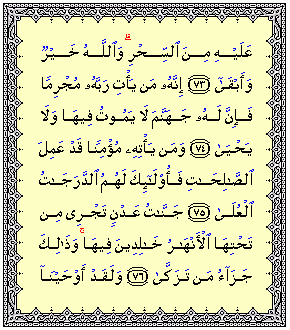 عَلَيْهِ مِنَ ٱلسِّحْرِ ۗ وَٱللَّهُ خَيْرٌ
وَأَبْقَىٰٓ ﴿٧٣﴾ إِنَّهُۥ مَن يَأْتِ رَبَّهُۥ مُجْرِمًا
فَإِنَّ لَهُۥ جَهَنَّمَ لَا يَمُوتُ فِيهَا وَلَا
يَحْيَىٰ ﴿٧٤﴾ وَمَن يَأْتِهِۦ مُؤْمِنًا قَدْ عَمِلَ
ٱلصَّٰلِحَٰتِ فَأُو۟لَٰٓئِكَ لَهُمُ ٱلدَّرَجَٰتُ
ٱلْعُلَىٰ ﴿٧٥﴾ جَنَّٰتُ عَدْنٍ تَجْرِى مِن
تَحْتِهَا ٱلْأَنْهَٰرُ خَٰلِدِينَ فِيهَا ۚ وَذَٰلِكَ
جَزَآءُ مَن تَزَكَّىٰ ﴿٧٦﴾ وَلَقَدْ أَوْحَيْنَآ